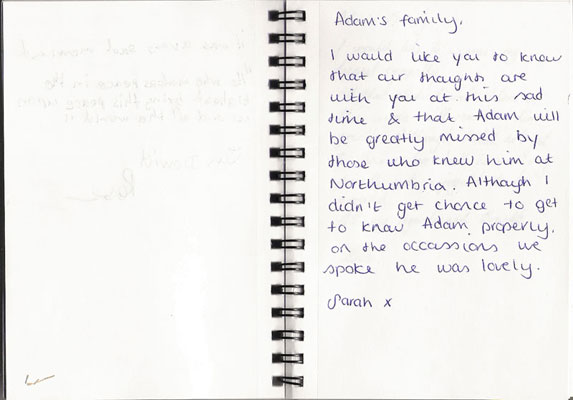 Adam's family,
I would like you to know
that our thoughts are
with you at this sad
time & that Adam will
be greatly missed by
those who knew him at
Northumbria. Although I
didn't get chance to get
to know Adam properly,
on the occassions we
spoke he was lovely.
Sarah x